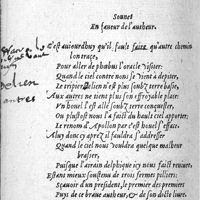 Sonnet
En faueur de l'autheur.
C'est aujourdhuy qu'il fault faire qu'autre chemin
lon traçe,
Pour aller de phœbus l'oracle visiter:
Quand le ciel contre nous se vient à depiter,
Le tripier Delien n'est plus soubz terre basse,
Aux autres ne tient plus son effroyable place:
Vn houel l'est allé soubz terre conquester,
Ou plustost nous l'a faict du hault ciel apporter:
Le renom d'Apollon par c'est houel s'efface,
Alny donc apres il fauldra s'addresser
Quand le ciel nous vouldra quelque malheur
brasser,
Puisque l'airain delphique icy nous faict reuiure:
Estans mieux soustenu de trois fermes pilliers:
Sçauoir d'un president, le premier des premiers
Puys de ce braue autheur, & de son dit liure.
Delien
antres